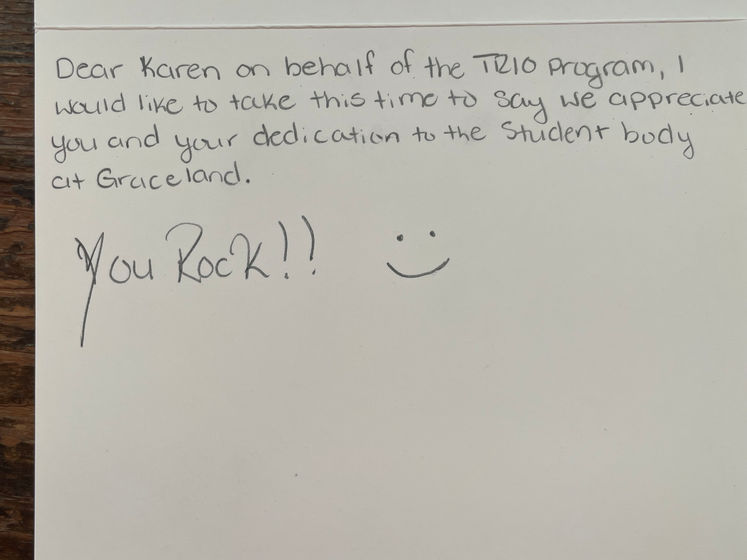 Dear Karen on behalf of the TRIO program, I
would like to take this time to say we appreciate
you and your dedication to the Student body
at Graceland.
You Rock!!